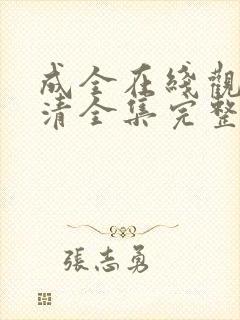 成全在綫觀
清全集完整
張志勇